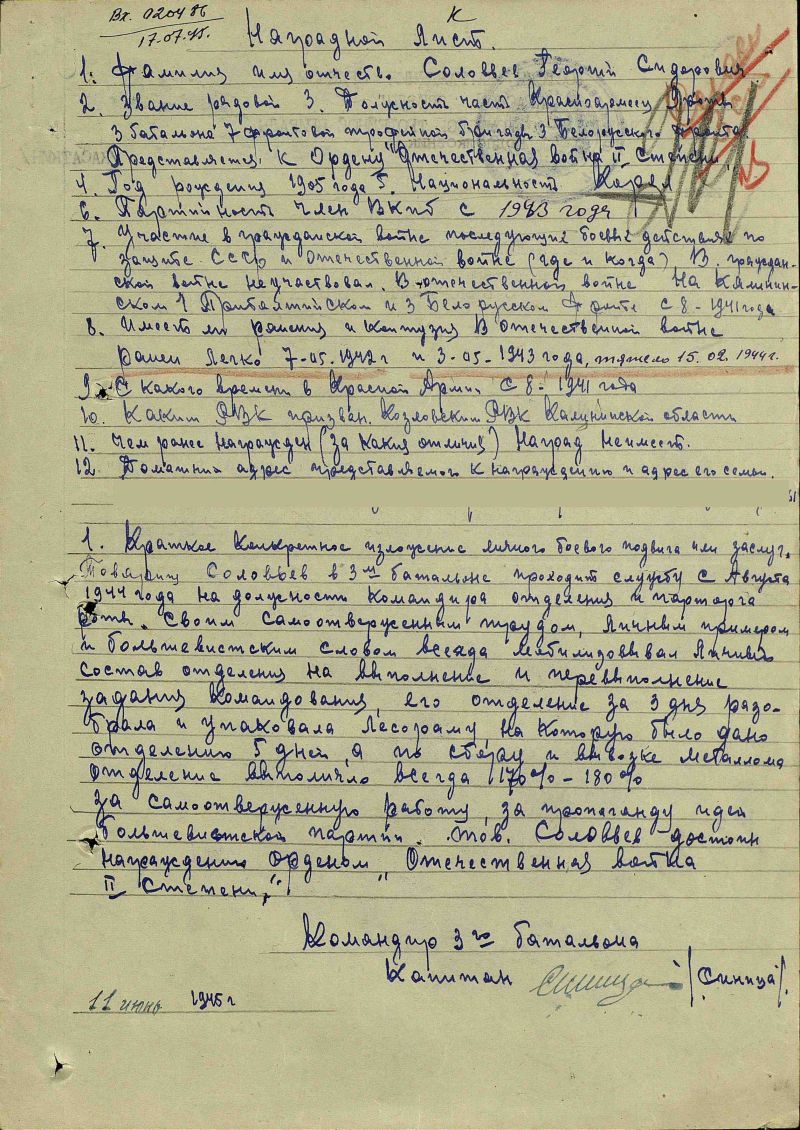 Вх. 020486
17.07.45.
Наградной Лист.
1. Фамилия имя отчество Соловьев Георгий Сидорович
2. Звание рядовой 3. Должность часть Красноармеец роты
3 батальона 7 фронтовой трофейной бригады 3 Белорусского фронта.
Представляется к Ордену "Отечественная война II Степени
4. Год рождения 1905 года 5. Национальность Карел
6. Партийность член ВКПб с 1943 года
7. Участие в гражданской войне последующие боевые действиях по
защите СССР и Отечественной войне (где и когда) В граждан-
ской войне неучаствовал. В отечественной войне на Калинин-
ском 1 Прибалтийском и 3 Белорусском Фронте с 8-1941 года
8. Имеет ли ранения и контузия в отечественной войне
ранен Легко 7-05-1942 г и 3-05-1943 года, тяжело 15.02.1944 г.
9. С какого времени в Красной Армии с 8-1941 года
10. Каким РВК призван. Козловским РВК Калининской области
11. Чем ранее награжден (за какия отличия) Наград неимеет.
12. Домашний адрес представляемого к награждению и адрес его семьи.
1. Краткое конкретное изложение личного боевого подвига или заслуг.
Товарищ Соловьев в 3м батальоне проходит службу с Августа
1944 года на должности командира отделения и парторга
роты. Своим самоотверженным трудом, Личным примером
и большевистским словом всегда мобилизовывал Личный
состав отделения на выполнение и перевыполнение
задания командования, его отделение за 3 дня разо-
брала и упаковала Лесораму, на которую было дано
отделению 5 дней, а по сбору и вывозке металлома
отделение выполнило всегда 170%-180%
За самоотверженную работу, за пропаганду идей
большевистской партии. тов. Соловьев достоин
награждения орденом "Отечественная война
II Степени".
Командир 3го батальона
Капитан /Синица/.
11 июнь 1945 г